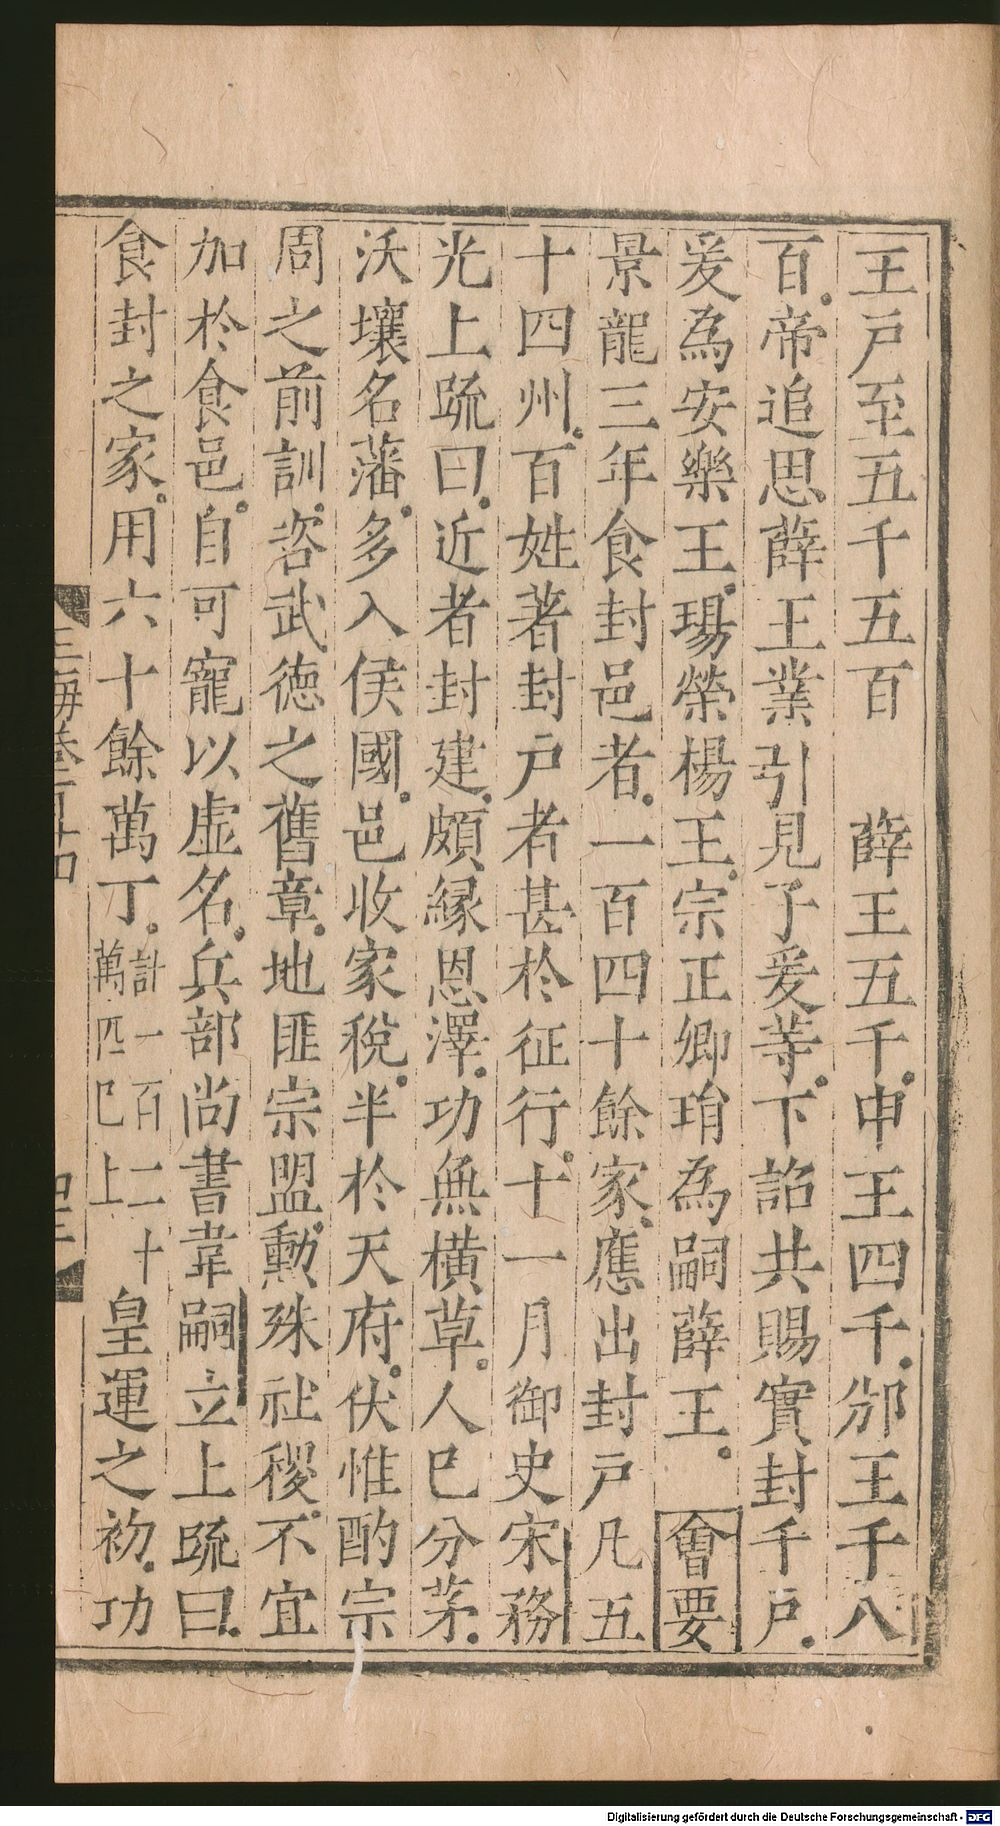 王戶至五千五百　薛王五千。申王四千。邠王千八
百。帝追思薛王業引見子爰等。下詔共賜實封千戶。
爰為安樂王。瑒榮楊王。宗正卿琄為嗣薛王。會要
景龍三年食封邑者。一百四十餘家。應出封戶凡五
十四州。百姓著封戶者甚於征行。十一月御史宋務
光上疏曰。近者封建。頗緣恩澤。功無橫草。人已分茅。
沃壤名藩。多入侯國。邑收家稅。半於天府。伏惟酌宗
周之前訓。咨武德之舊章。地匪宗盟。勳殊社稷。不宜
加於食邑。自可寵以虛名。兵部尚書韋嗣立上疏曰。
食封之家。用六十餘萬丁。計一百二十萬匹已上皇運之初。功
玉海卷一百三十四
Digitalisierung gefördert durch die Deutsche Forschungsgemeinschaft - DFG